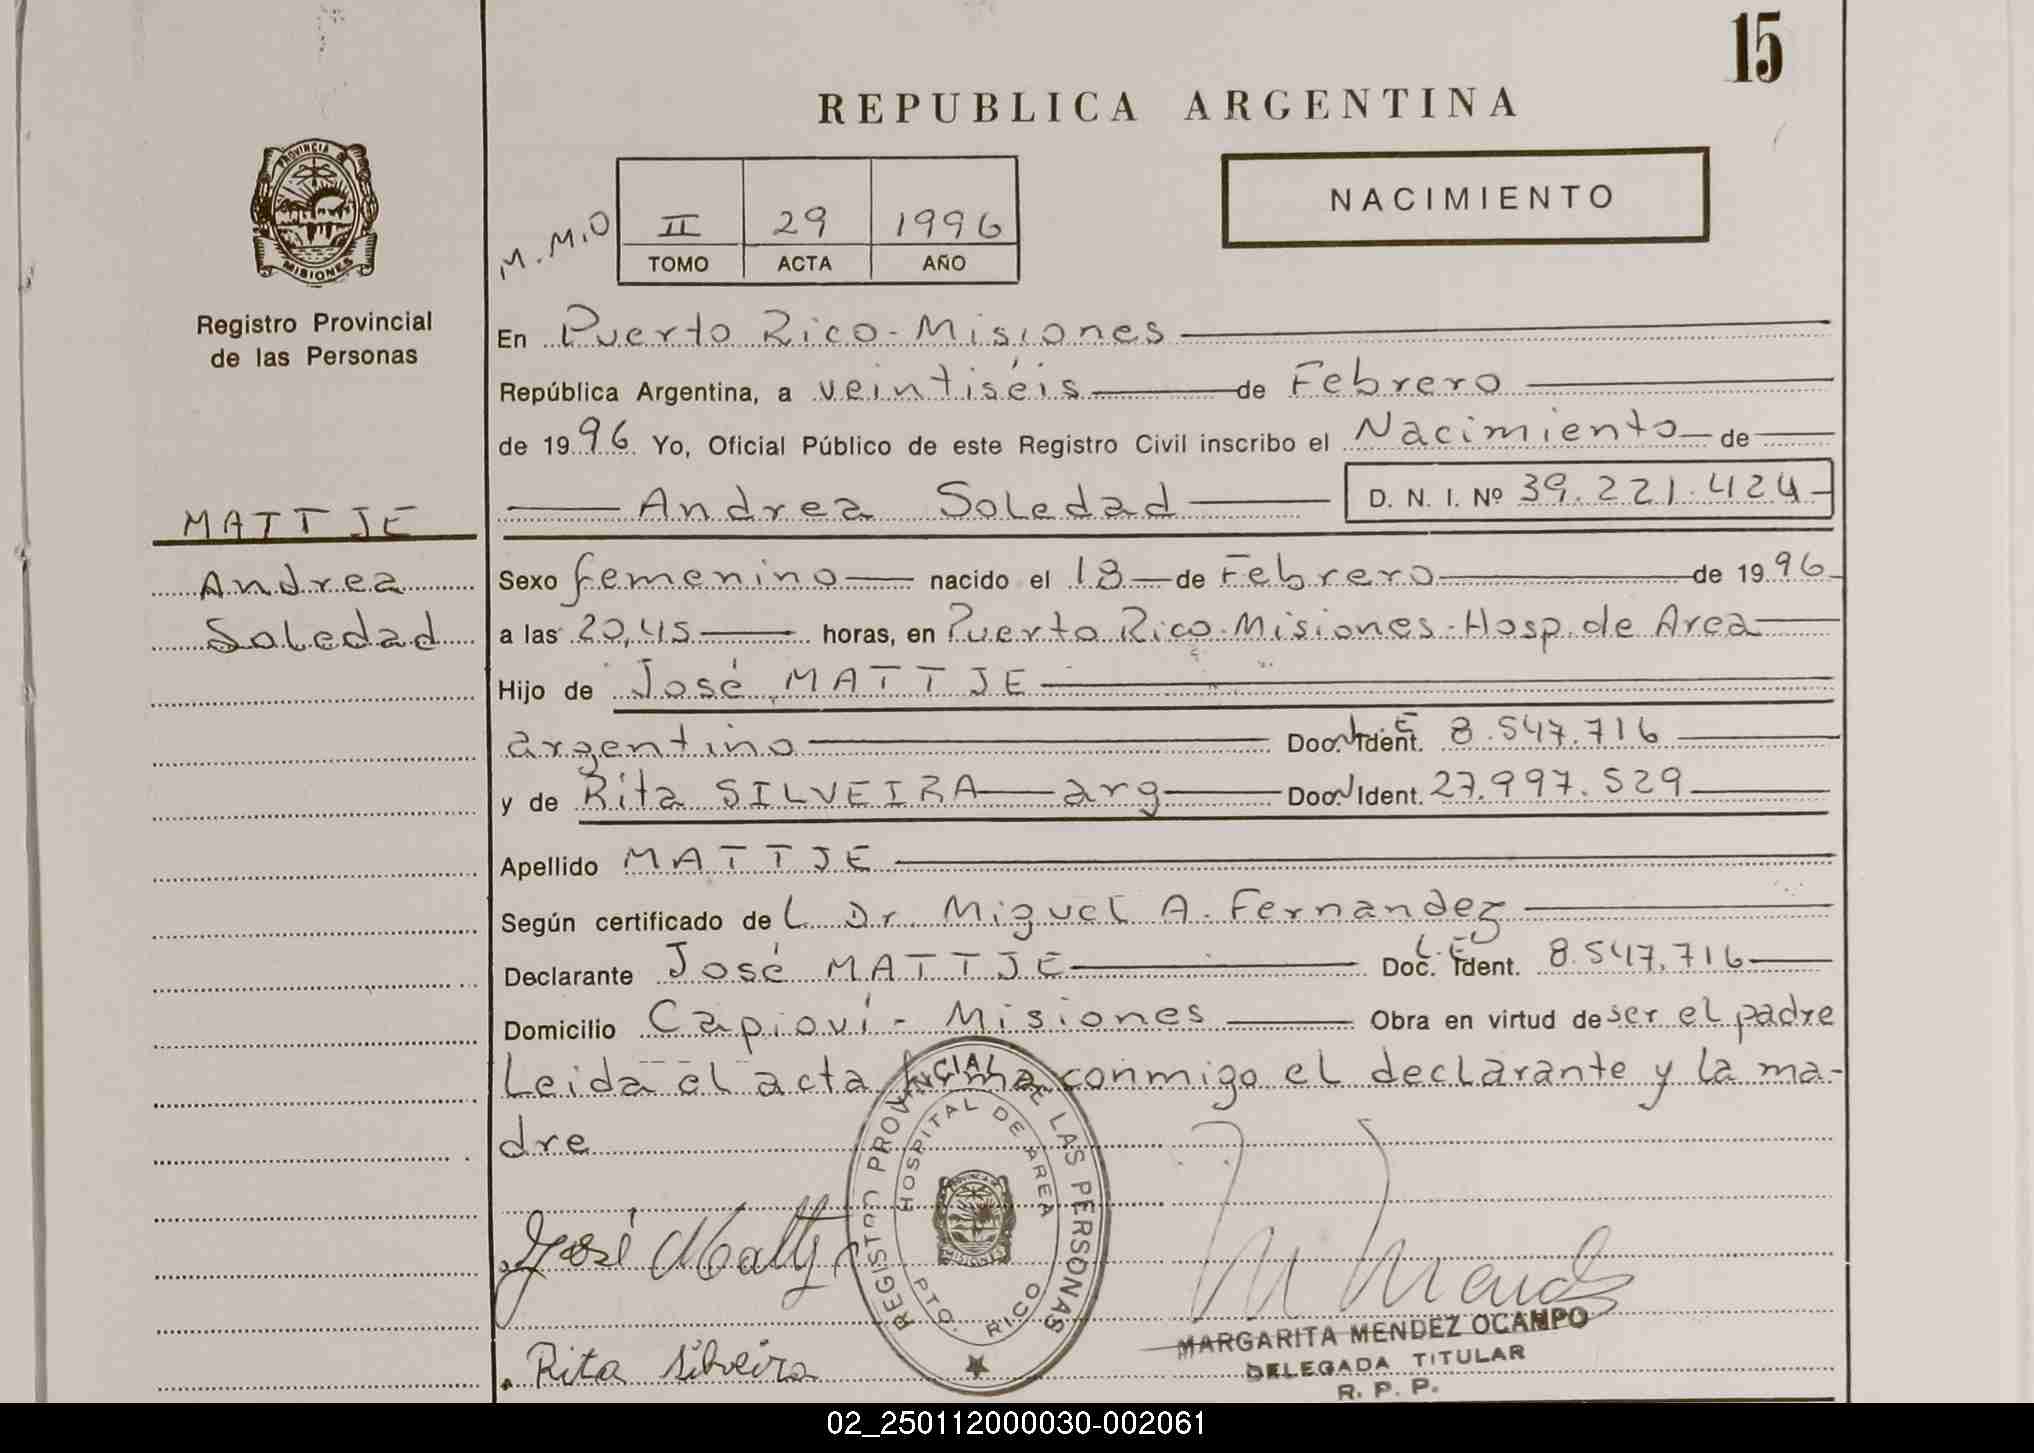 15
REPUBLICA ARGENTINA
PROVINCIA DE
MISIONES
Registro Provincial
de las Personas
M.M.O
II 29 1996
TOMO ACTA AÑO
NACIMIENTO
En Puerto Rico - Misiones
República Argentina, a veintiséis de Febrero
de 1996 Yo, Oficial Público de este Registro Civil inscribo el Nacimiento de
Andrea Soledad D. N. I. Nº 39.221.424
MATTJE
Andrea
Soledad
Sexo femenino nacido el 18 de Febrero de 1996
a las 20,45 horas, en Puerto Rico-Misiones-Hosp. de Area
Hijo de José MATTJE
argentino Doc. Ident. L.E 8.547.716
y de Rita SILVEIRA arg Doc. Ident. 27.997.529
Apellido MATTJE
Según certificado del Dr. Miguel A. Fernandez
Declarante José MATTJE Doc. Ident. L.E 8.547.716
Domicilio Capioví - Misiones Obra en virtud de ser el padre
Leida el acta firma conmigo el declarante y la ma-
dre
REGISTRO PROVINCIAL DE LAS PERSONAS
HOSPITAL DE AREA
PTO. RICO
José Mattje
Rita Silveira
MARGARITA MENDEZ OCAMPO
DELEGADA TITULAR
R. P. P.
02_250112000030-002061